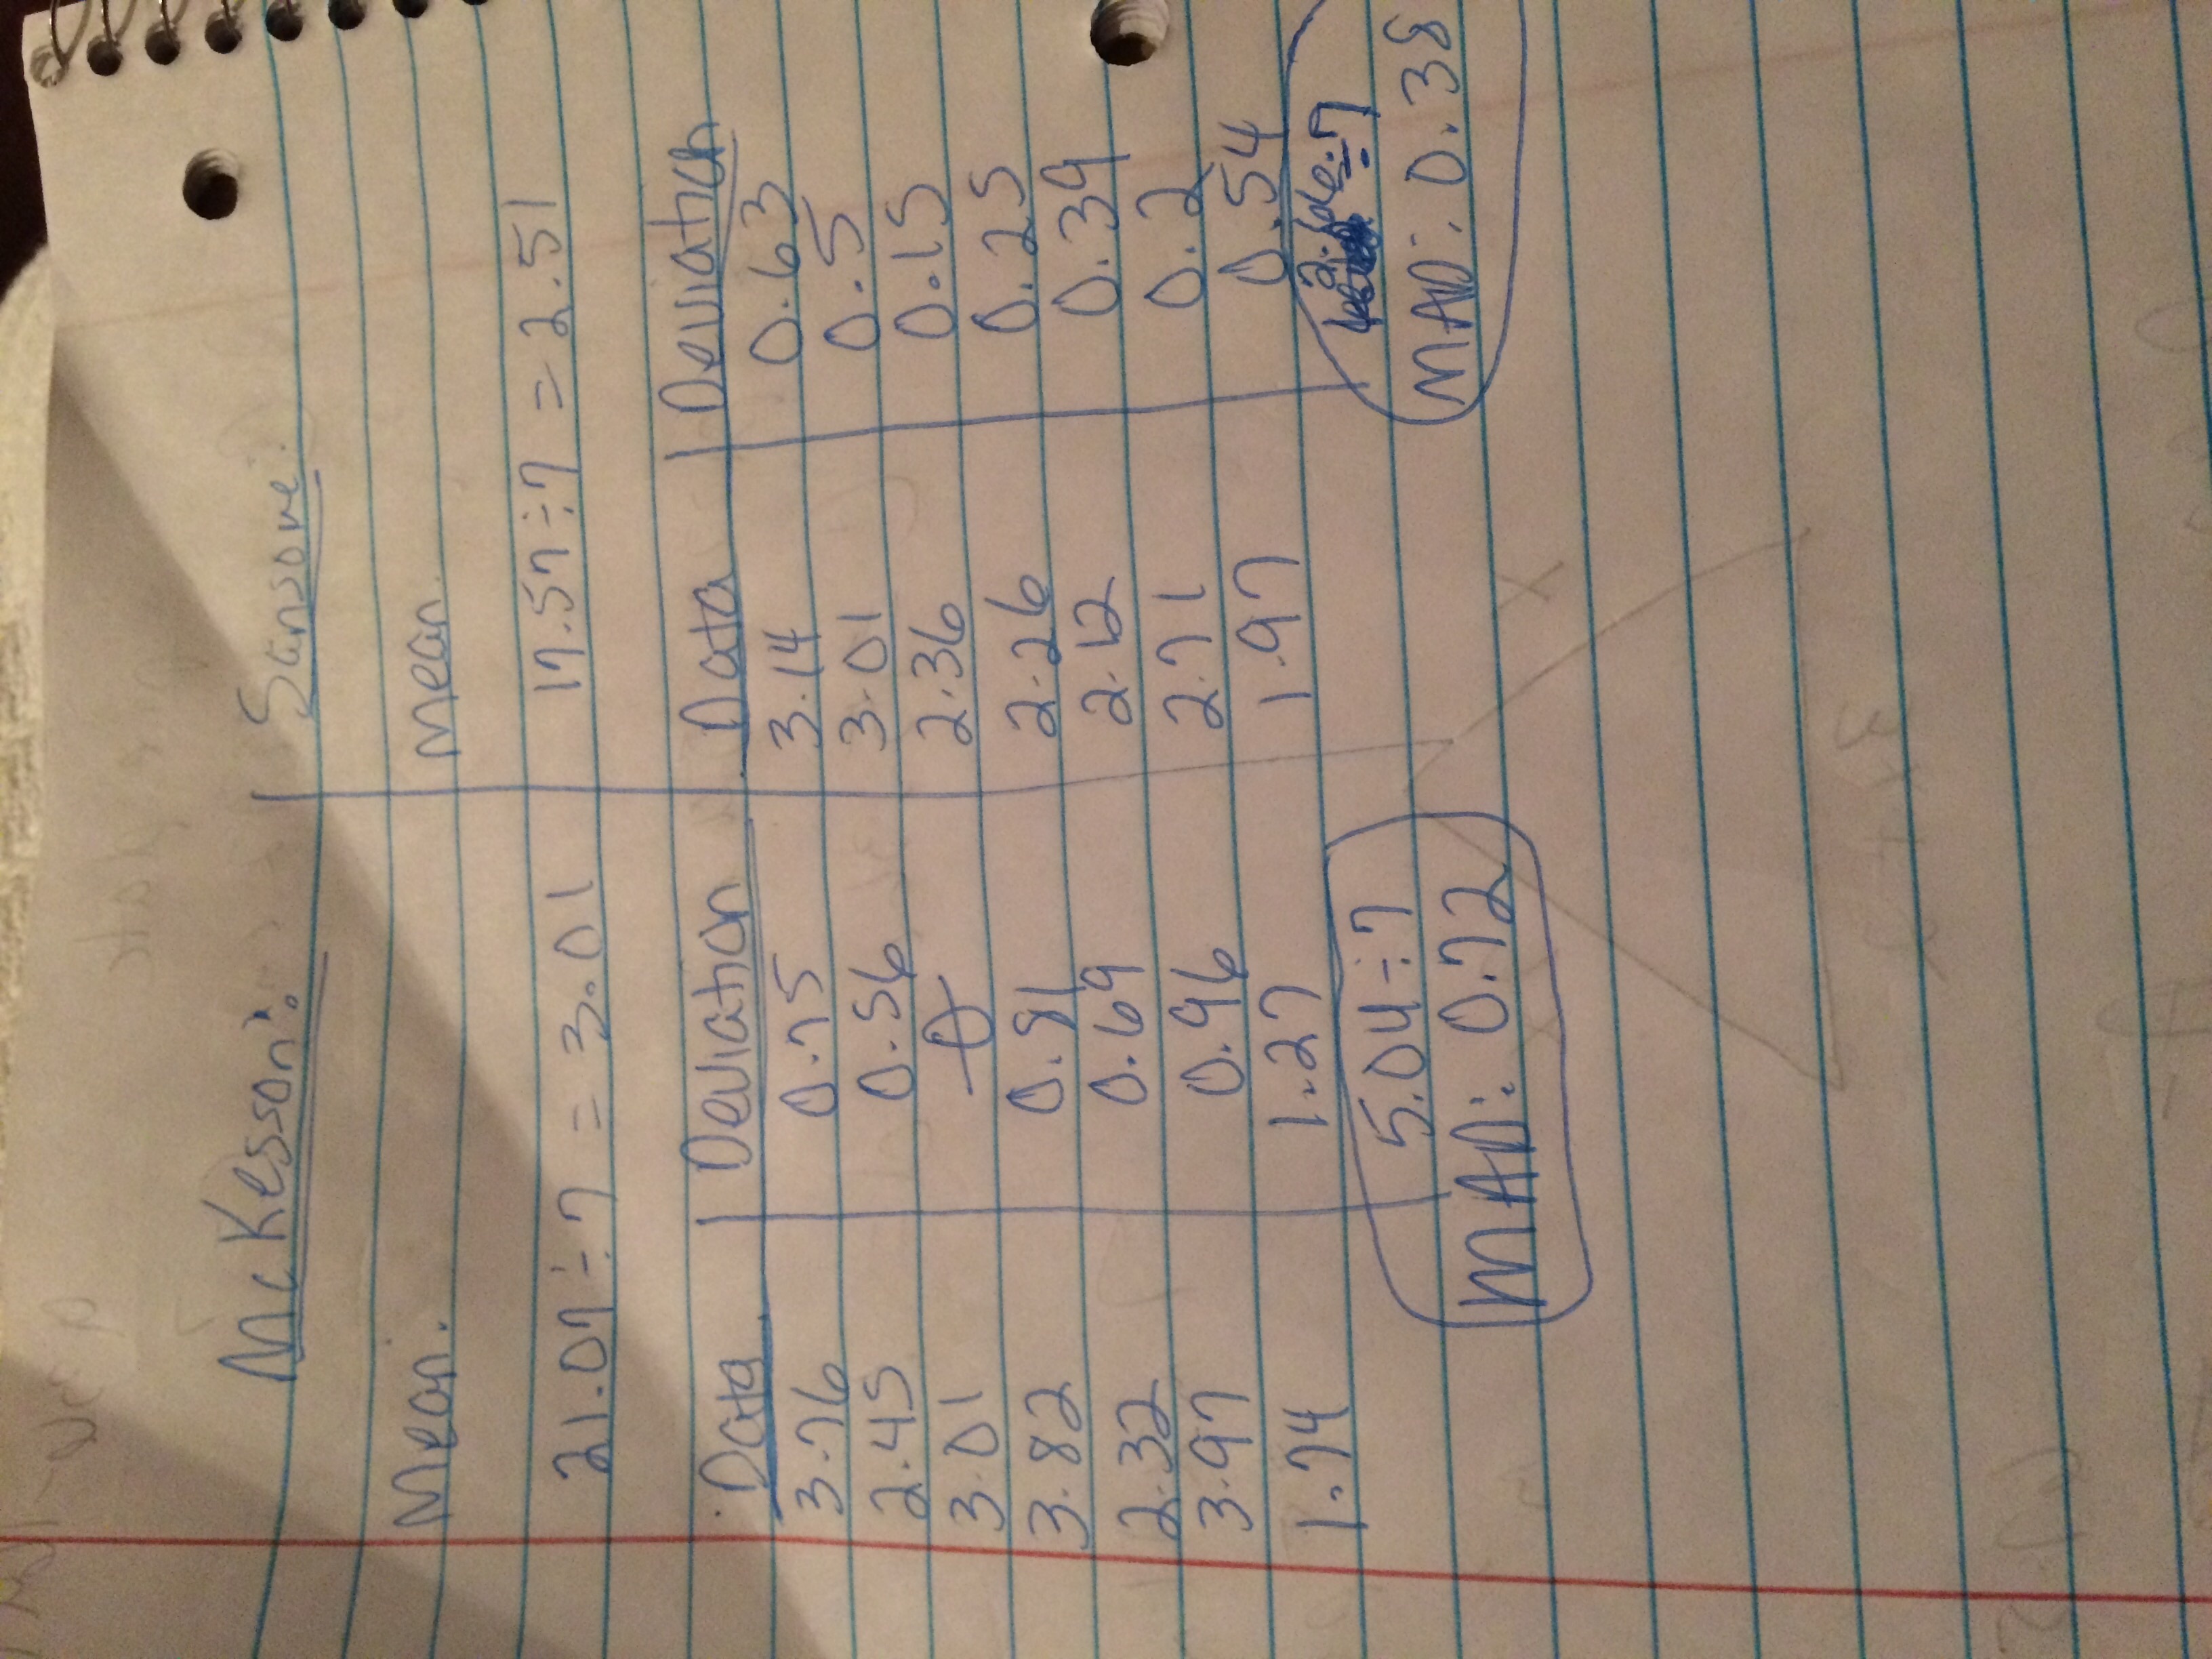 McKesson: Sansome:
Mean: Mean:
21.07÷7 = 3.01 17.57÷7 = 2.51
Data Deviation Data Deviation
3.76 0.75 3.14 0.63
2.45 0.56 3.01 0.5
3.01 0 2.36 0.15
3.82 0.81 2.26 0.25
2.32 0.69 2.12 0.39
3.97 0.96 2.71 0.2
1.74 1.27 1.97 0.54
5.04÷7 ÷7
MAD: 0.72 MAD: 0.38